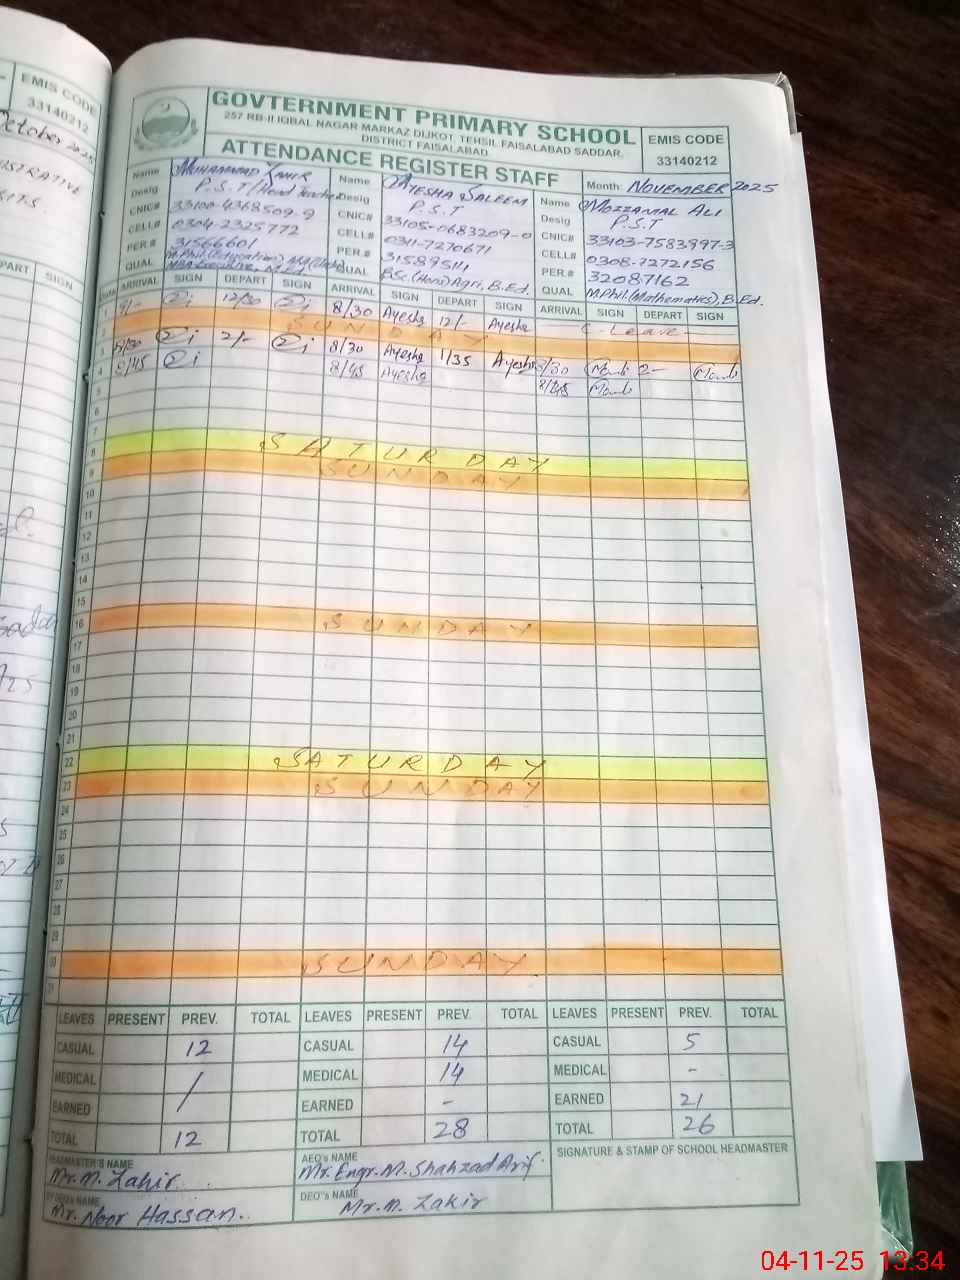 EMIS CODE
33140212
October 2025
GOVTERNMENT PRIMARY SCHOOL
257 RB-II IQBAL NAGAR MARKAZ DIJKOT, TEHSIL FAISALABAD SADDAR,
DISTRICT FAISALABAD.
ATTENDANCE REGISTER STAFF
EMIS CODE
33140212
Month: NOVEMBER 2025
Name MUHAMMAD ZAHIR
Desig P.S.T (Head Teacher)
CNIC# 33100-4368509-9
CELL# 0304-2325772
PER.# 31566601
QUAL M.Phil (Education)
Name AYESHA SALEEM
Desig P.S.T
CNIC# 33105-0683209-0
CELL# 0311-7270671
PER.# 31589511
QUAL BSc.(Hons) Agri, B.Ed.
Name MOZZAMAL ALI
Desig P.S.T
CNIC# 33103-7583997-3
CELL# 0308-7272156
PER.# 32087162
QUAL M.Phil.(Mathematics), B.Ed.
ARRIVAL SIGN DEPART SIGN ARRIVAL SIGN DEPART SIGN ARRIVAL SIGN DEPART SIGN
1 9/- 12/30 8/30 Ayesha 12/- Ayesha C-Leave
2 SUNDAY
3 8/30 2/- 8/30 Ayesha 1/35 Ayesha 8/30 2-
4 8/45 8/45 Ayesha 8/45
5
6
7
8 SATURDAY
9 SUNDAY
10
11
12
13
14
15
16 SUNDAY
17
18
19
20
21
22 SATURDAY
23 SUNDAY
24
25
26
27
28
29
30 SUNDAY
31
LEAVES PRESENT PREV. TOTAL LEAVES PRESENT PREV. TOTAL LEAVES PRESENT PREV. TOTAL
CASUAL 12 CASUAL 14 CASUAL 5
MEDICAL / MEDICAL 14 MEDICAL -
EARNED EARNED - EARNED 21
TOTAL 12 TOTAL 28 TOTAL 26
HEADMASTER'S NAME
Mr. M. Zahir
AEO's NAME
Mr. Engr. M. Shahzad Arif.
SIGNATURE & STAMP OF SCHOOL HEADMASTER
NAME
Mr. Noor Hassan.
DEO"s NAME
Mr. M. Zakir
04-11-25 13:34